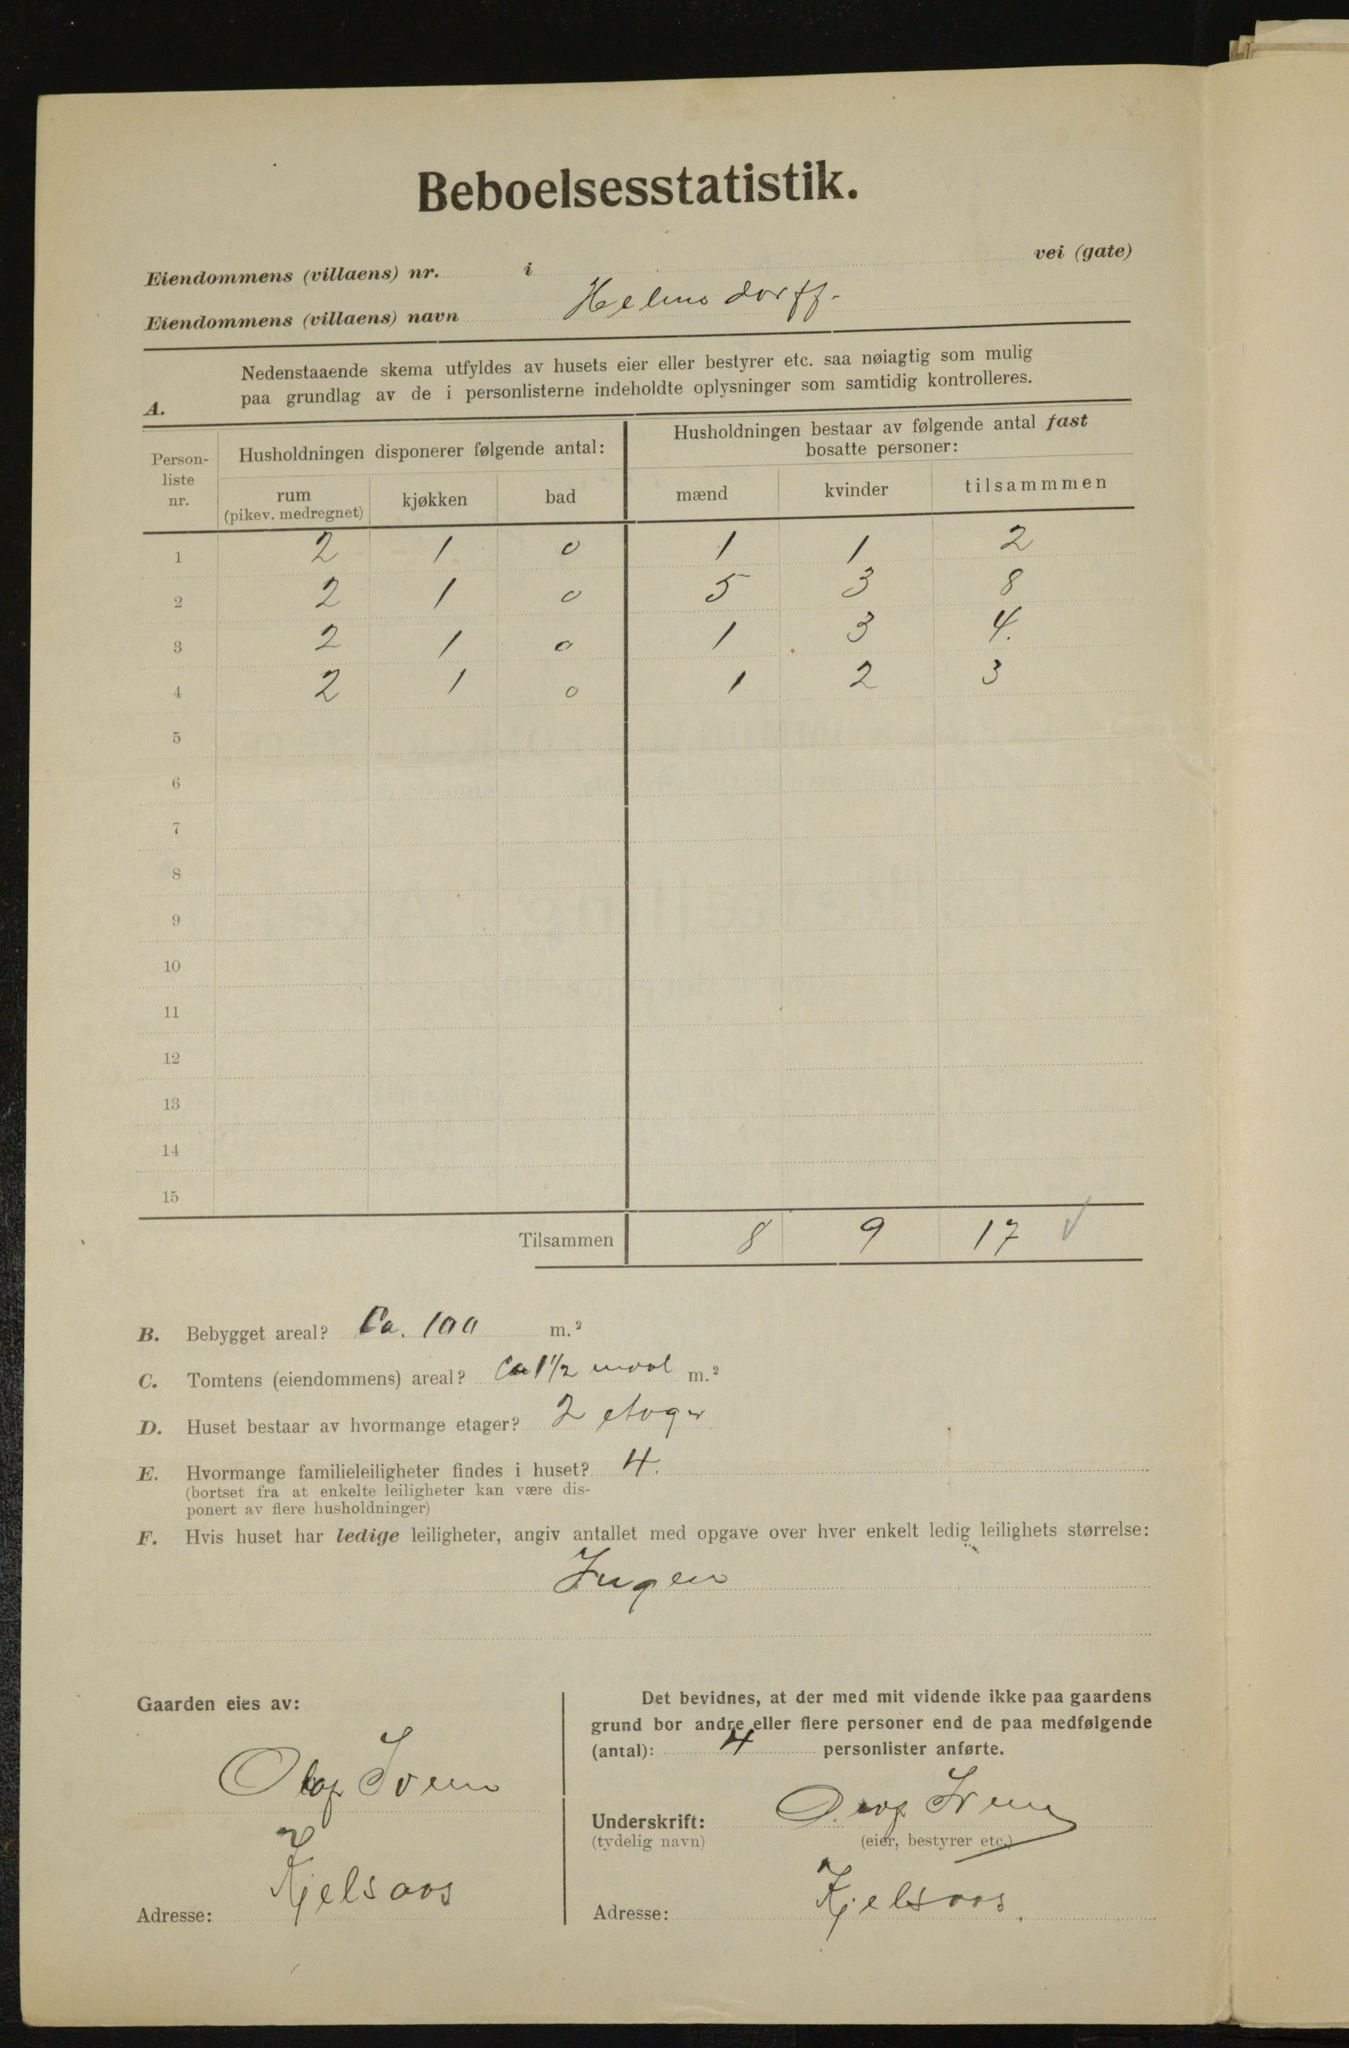 Beboelsesstatistik.
Eiendommens (villaens) nr. i vei (gate)
Eiendommens (villaens) navn Helmsdorff.
A. Nedenstaaende skema utfyldes av husets eier eller bestyrer etc. saa nøiagtig som mulig
paa grundlag av de i personlisterne indeholdte oplysninger som samtidig kontrolleres.
Person-liste nr. Husholdningen disponerer følgende antal: Husholdningen bestaar av følgende antal fast bosatte personer:
rum (pikev. medregnet) kjøkken bad mænd kvinder tilsammmen
1 2 1 0 1 1 2
2 2 1 0 5 3 8
3 2 1 0 1 3 4.
4 2 1 0 1 2 3
5
6
7
8
9
10
11
12
13
14
15
Tilsammen 8 9 17 ✓
B. Bebygget areal? Ca. 100 m.²
C. Tomtens (eiendommens) areal? Ca 1 1/2 maal m.²
D. Huset bestaar av hvormange etager? 2 etager
E. Hvormange familieleiligheter findes i huset? 4.
(bortset fra at enkelte leiligheter kan være dis-
ponert av flere husholdninger)
F. Hvis huset har ledige leiligheter, angiv antallet med opgave over hver enkelt ledig leilighets størrelse:
Ingen
Gaarden eies av:
Olaf
Adresse: Kjelsaas
Det bevidnes, at der med mit vidende ikke paa gaardens
grund bor andre eller flere personer end de paa medfølgende
(antal): 4 personlister anførte.
Underskrift: Olaf
(tydelig navn) (eier, bestyrer etc.)
Adresse: Kjelsaas.